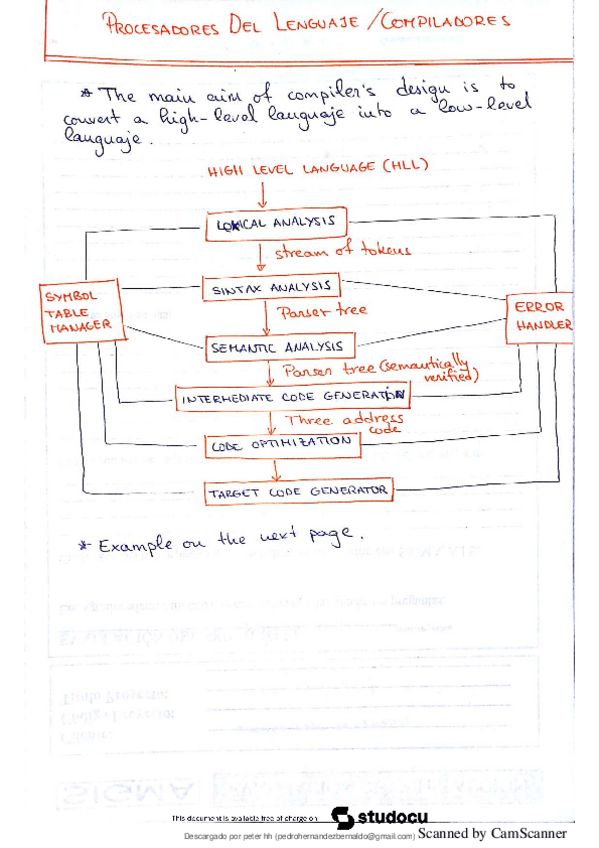 PROCESADORES DEL LENGUAJE / COMPILADORES
* The main aim of compiler's design is to
convert a high-level languaje into a low-level
languaje.
HIGH LEVEL LANGUAGE (HLL)
LEXICAL ANALYSIS
stream of tokens
SINTAX ANALYSIS
SYMBOL
TABLE
MANAGER
ERROR
HANDLER
Parser tree
SEMANTIC ANALYSIS
Parser tree (semantically
verified)
INTERMEDIATE CODE GENERATION
Three address
code
CODE OPTIMIZATION
TARGET CODE GENERATOR
* Example on the next page.
This document is available free of charge on
studocu
Descargado por peter hh (pedrohernandezbernaldo@gmail.com)
Scanned by CamScanner